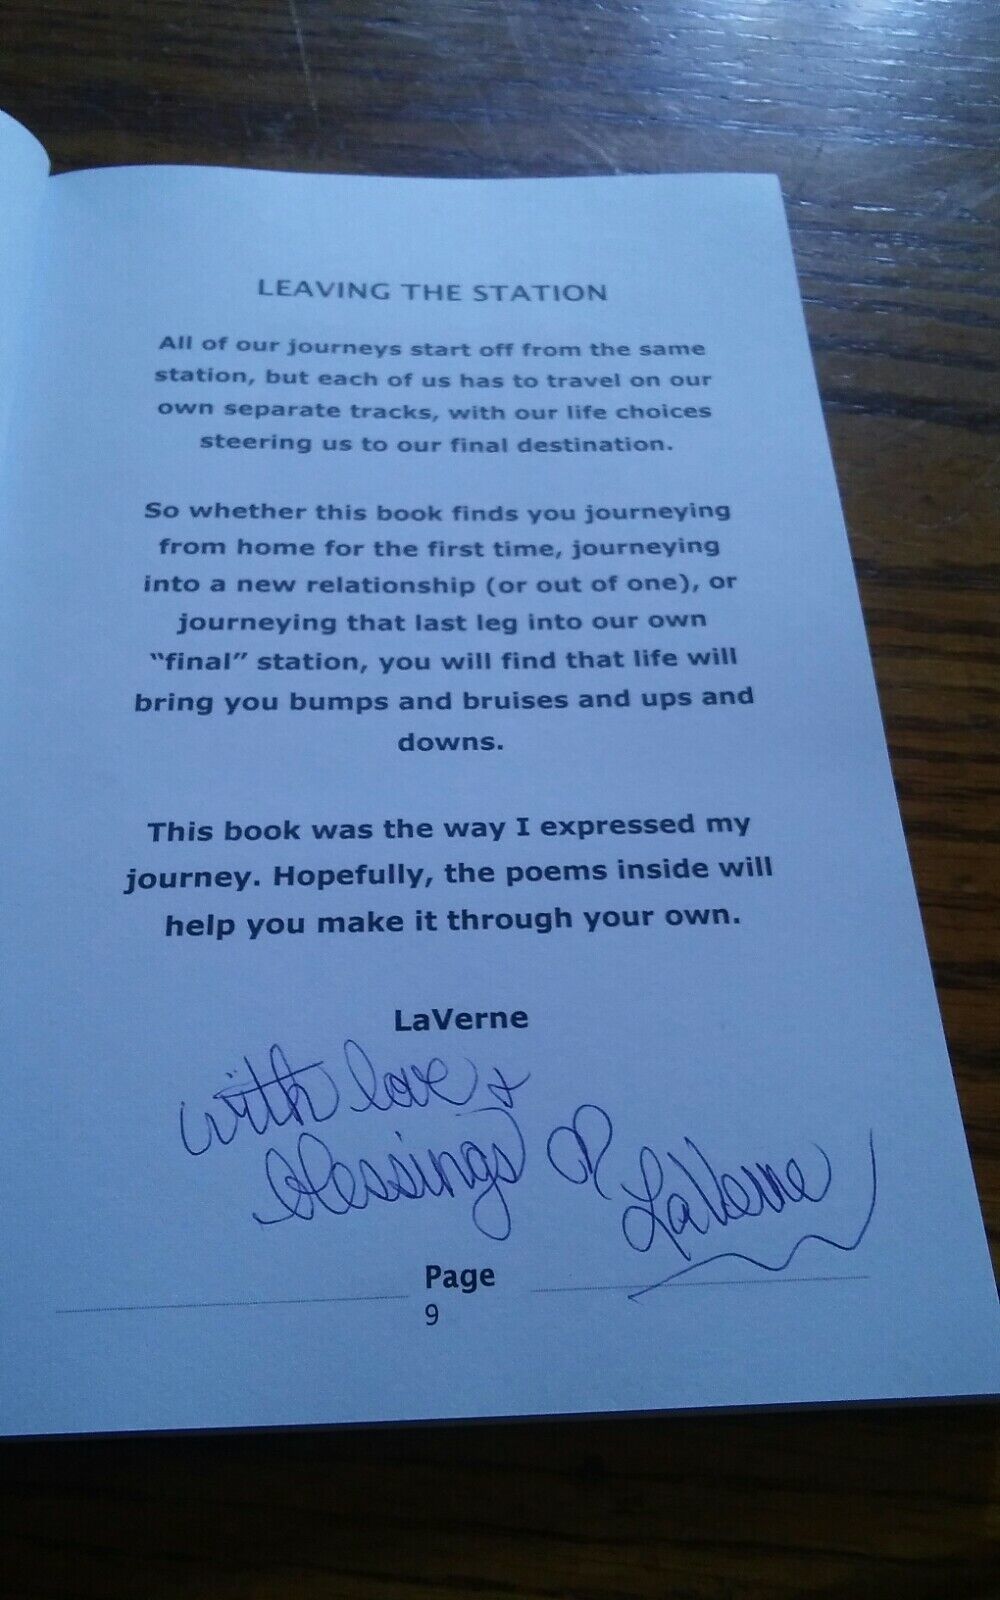 LEAVING THE STATION
All of our journeys start off from the same
station, but each of us has to travel on our
own separate tracks, with our life choices
steering us to our final destination.
So whether this book finds you journeying
from home for the first time, journeying
into a new relationship (or out of one), or
journeying that last leg into our own
“final” station, you will find that life will
bring you bumps and bruises and ups and
downs.
This book was the way I expressed my
journey. Hopefully, the poems inside will
help you make it through your own.
LaVerne
with love +
blessings
LaVerne
Page
9